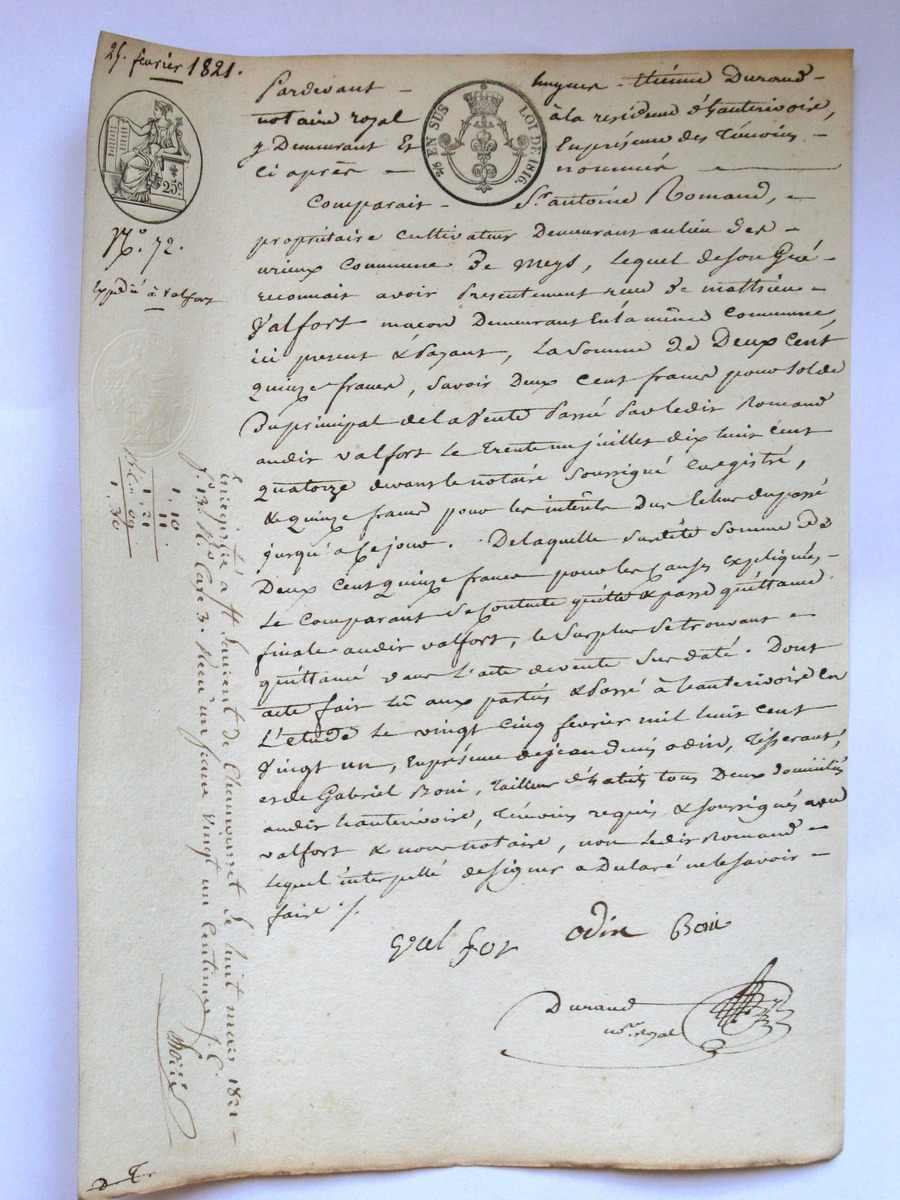 25. février 1821.
Pardevant hugues - étiénne Durand -
notaire royal à la residence d'hauterivoire,
y Demeurant Et En présence des Témoins -
ci après nommés
EN SUS LOI DE 1816.
25c
N.o 72.
Expedié à Valfort
Comparait - S.r antoine Romand, -
propriétaire cultivateur Demeurant au lieu des -
urieux commune De meys, lequel de son Gré -
reconnait avoir Presentement reçu De mathieu -
Valfort maçon Demeurant En la même commune,
ici present & Payant, La Somme De Deux Cent
quinze francs, Savoir Deux Cent francs pour Solde
Du prinipal de la Vente Passé Par ledit Romand
audit valfort le Trente un juillet dix huit cent
quatorze devant le notaire Soussigné Enregistré,
& quinze francs pour les intérêts Du passé
jusqu'a ce jour. De laquelle Somme De
Deux Cent quinze francs pour les causes expliquées -
Le Comparant Se Contente quitte & passe quittance
finale audit valfort, le Surplus Se trouvant -
quittancé dans l'acte de vente Sus daté. Dont
acte fait lû aux parties & Passé à hauterivoire En
L'étude le vingt cinq février mil huit cent
Vingt un, En présence de jean denis odin, Tisserant,
et de Gabriel Boni, Tailleur d'habits tous Deux domiciliés
audit hauterivoire, Témoins requis & soussignés avec
valfort & nous notaire, non Ledit Romand -
lequel interpellé de signer a Declaré ne le savoir -
faire ./.
Valfor odin Boni
Durand
no.re Royal
1, 10.
11
1, 21
09
1, 30.
Enregistré à St Laurent de Chamousset le huit mars 1821 -
f. 13. R.o Case 3. Reçu un franc Vingt un Centimes